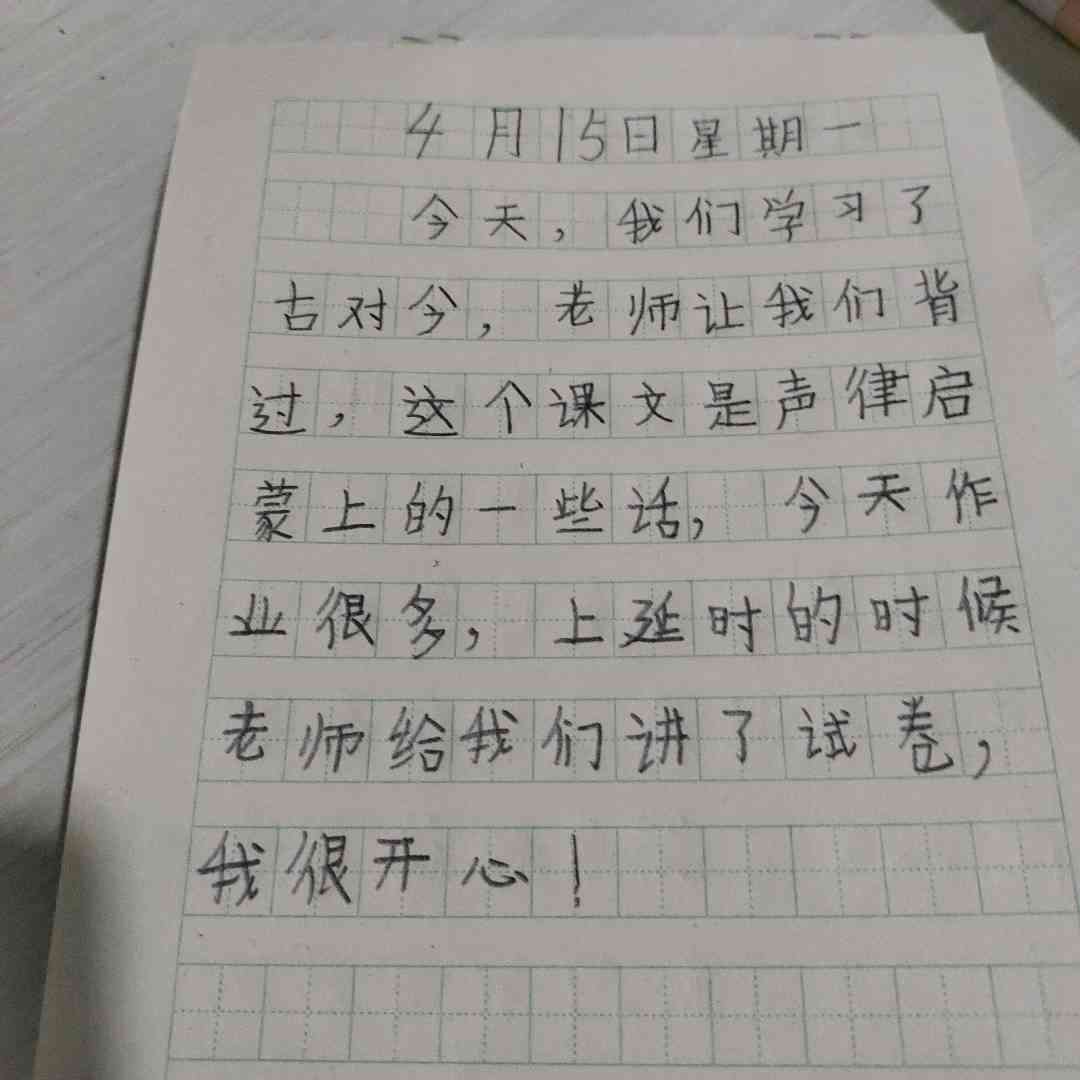 4月15日星期一
今天，我们学习了
古对今，老师让我们背
过，这个课文是声律启
蒙上的一些话，今天作
业很多，上延时的时候
老师给我们讲了试卷，
我很开心！